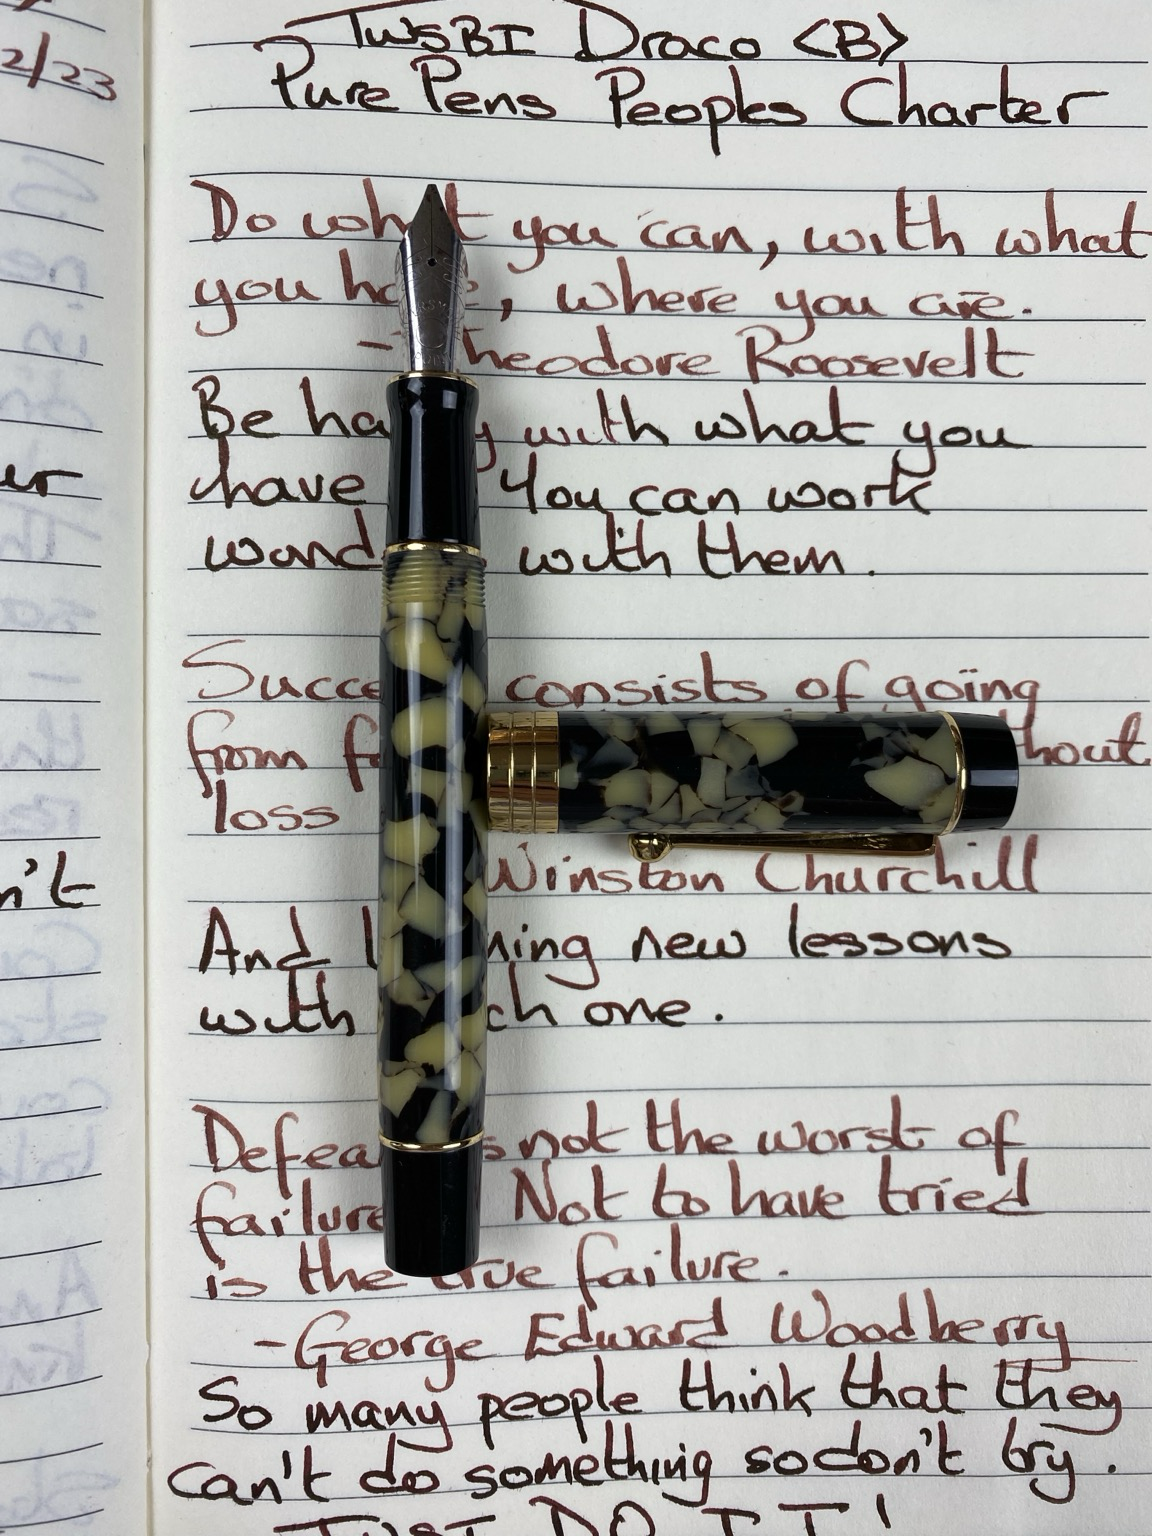 2/23
er
n't
TWSBI Draco <B>
Pure Pens Peoples Charter
Do what you can, with what
you have, where you are.
- Theodore Roosevelt
Be happy with what you
have You can work
wonders with them.
Success consists of going
from thout
loss
Winston Churchill
And learning new lessons
with each one.
Defeat is not the worst of
failures Not to have tried
is the true failure.
- George Edward Woodberry
So many people think that they
can't do something so don't try.
JUST DO IT!